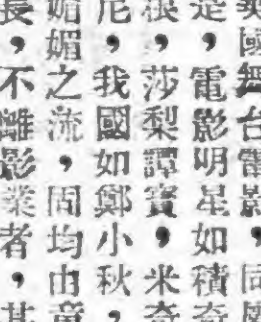 國舞台電影，同
是，電影明星，如積奇
，莎梨譚寶，米奇
尼，我國如鄭小秋，
媚媚之流，固均由童
長，不離影業者，其